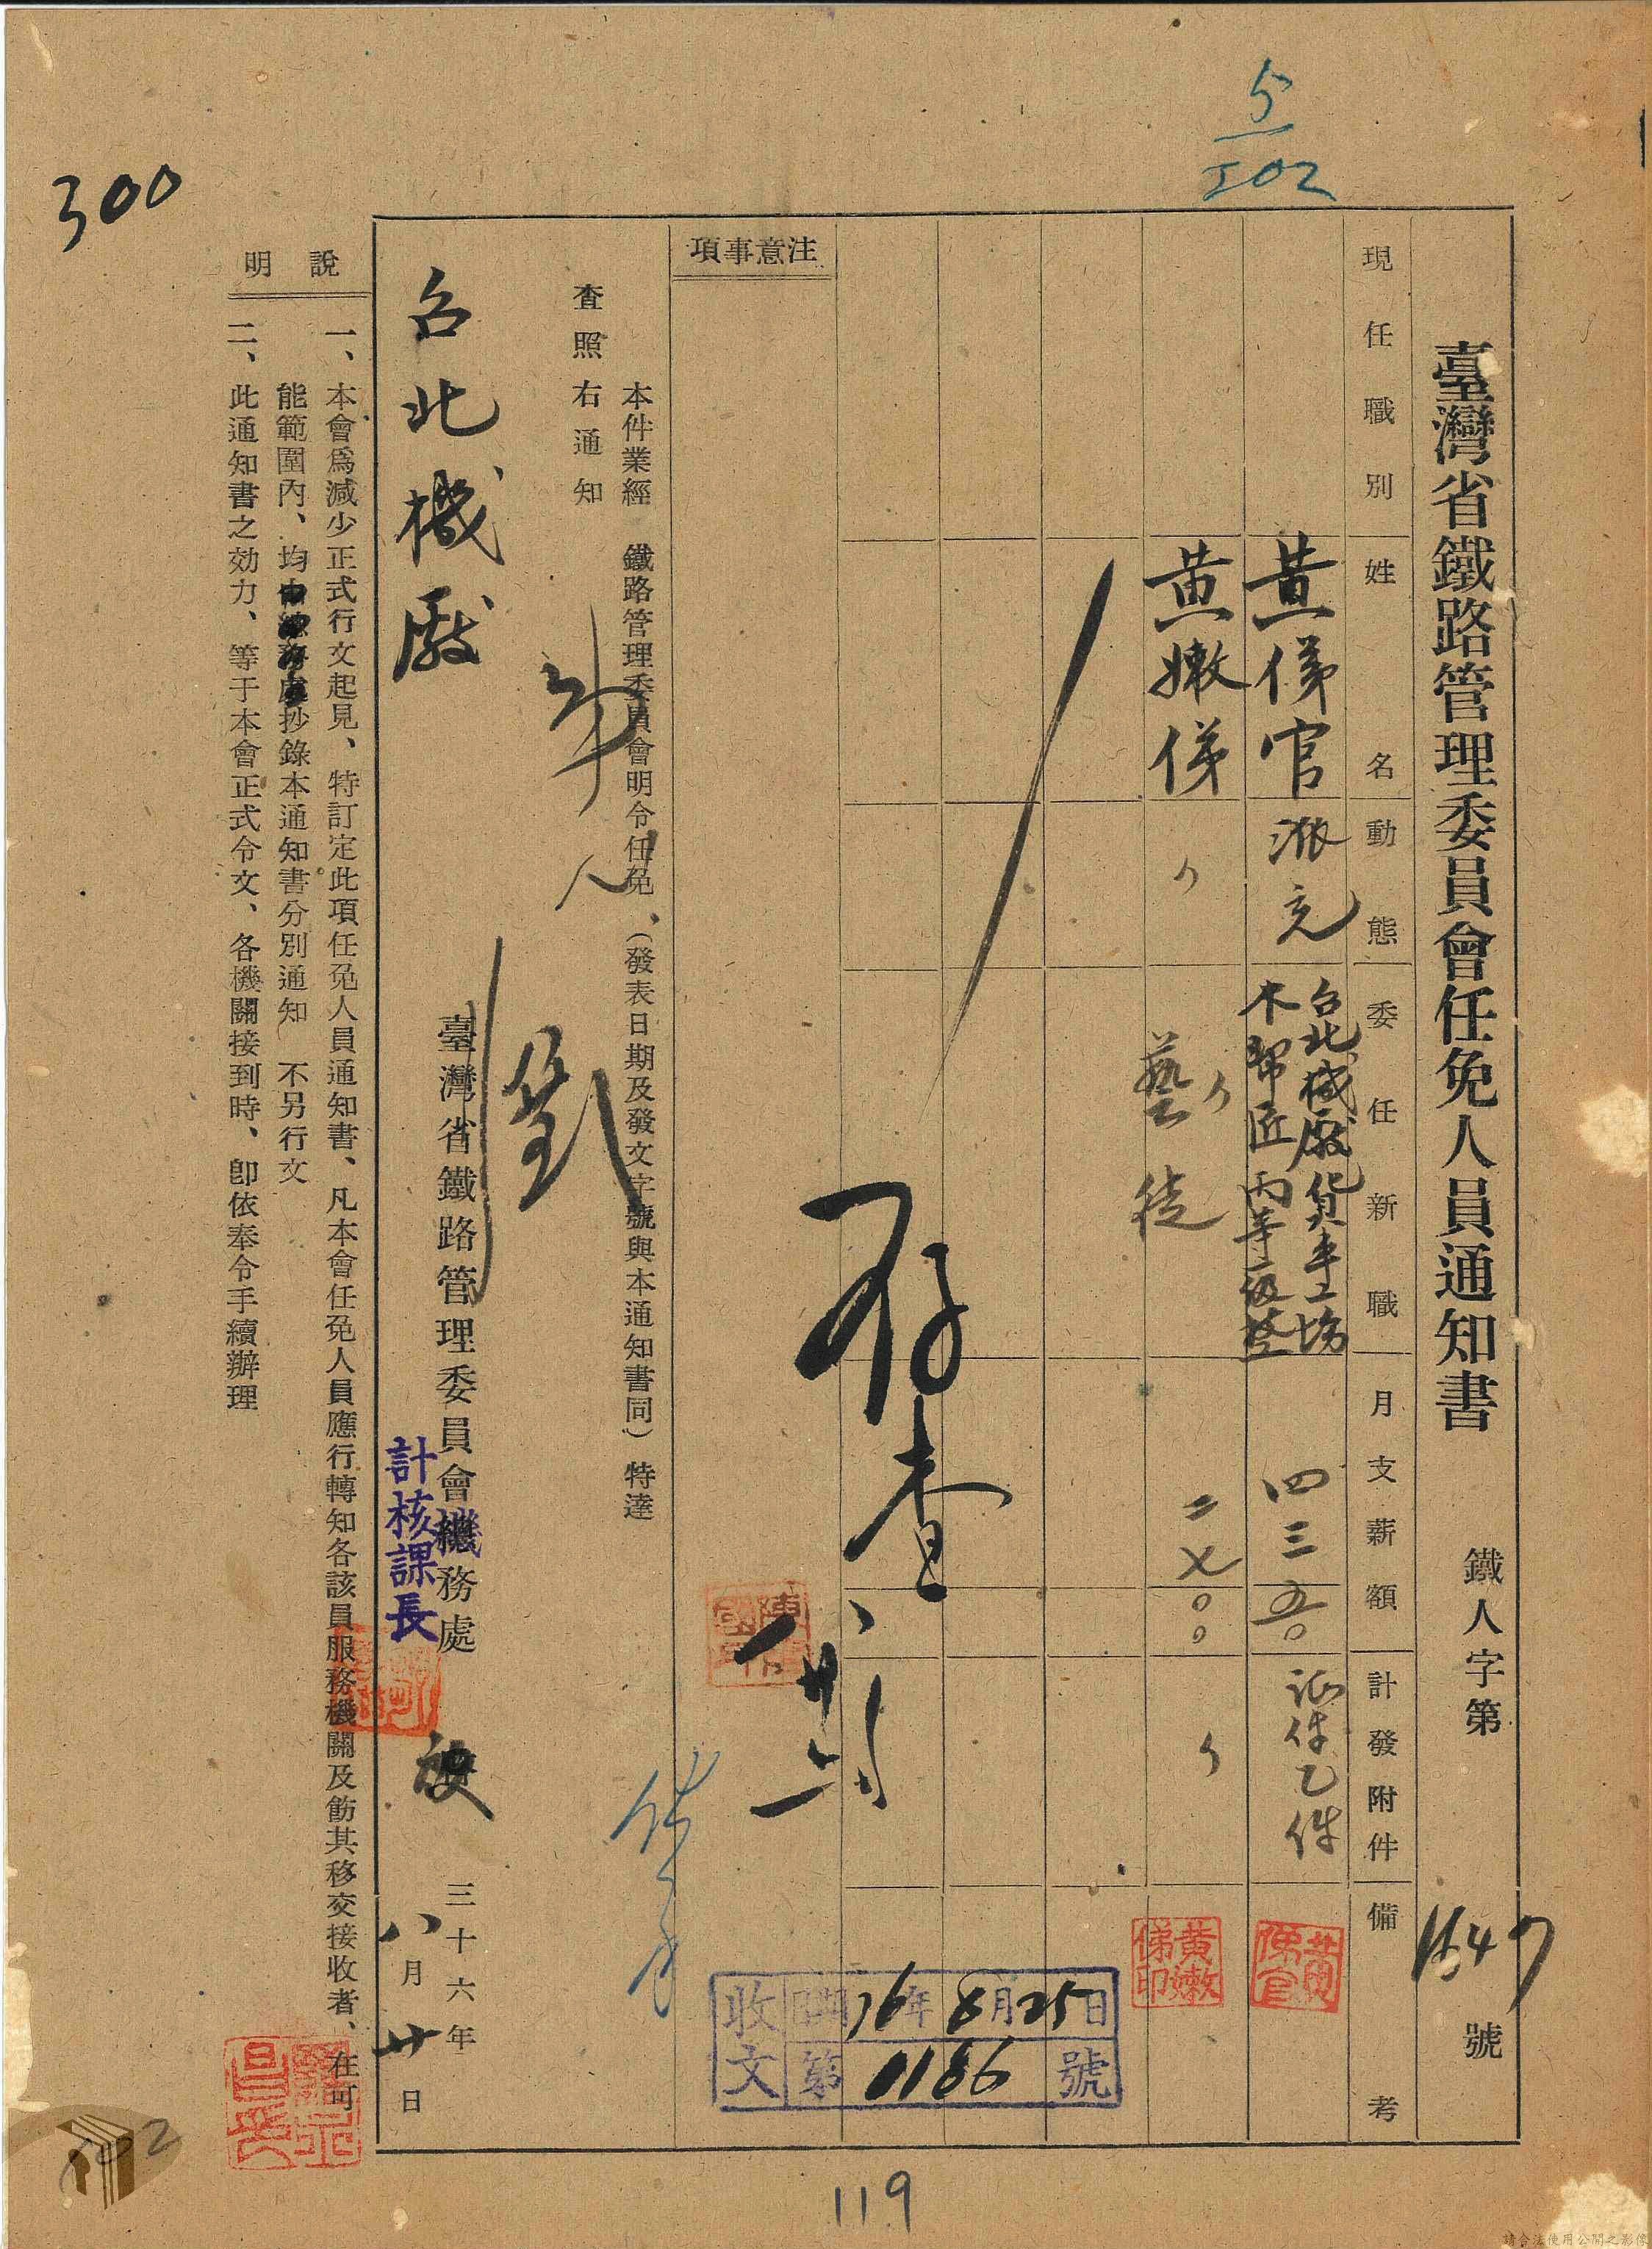 5
I02
300
臺灣省鐵路管理委員會任免人員通知書
鐵人字第1547號
現任職別
姓名
動態
委任新職
月支薪額
計發附件
備考
黃俤官
派充
台北機廠貨車工場
四三五〇
証件乙件
黃俤官
黃嫩俤
〃
〃
藝徒
二七〇〇
〃
黃嫩俤印
注意事項
存查
本件業經 鐵路管理委員會明令任免、(發表日期及發文字號與本通知書同) 特達
查照右通知
台北機廠
劉
臺灣省鐵路管理委員會機務處
計核課長
三十六年
八月廿日
收文
36年8月25日
第0186號
說明
一、本會爲減少正式行文起見、特訂定此項任免人員通知書、凡本會任免人員應行轉知各該員服務機關及飭其移交接收者、在可
能範圍內、均由總務處抄錄本通知書分別通知 不另行文
二、此通知書之効力、等于本會正式令文、各機關接到時、卽依奉令手續辦理
102
119
請合法使用公開之影像